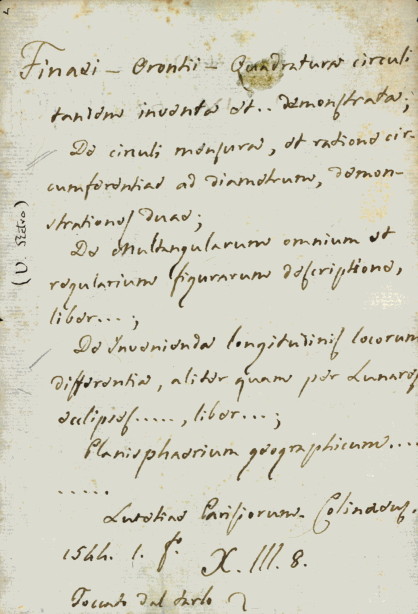 Finaei - Orontii - Quadratura circuli
tandem inventa et.. demonstrata;
De circuli mensura, et ratione cir-
cumferentiae ad diametrum, demon-
strationes duae;
(V. Retro)
De Multangularum omnium et
regularium figurarum descriptione,
liber...;
De Invenienda longitudinis locorum
differentia, aliter quam per Lunares
eclipses....., liber...;
Planisphaerium geographicum....
.....
Lutetiae Parisiorum. Colinaeus.
1544. l. fº. X. III. 8.
Toccato dal tarlo